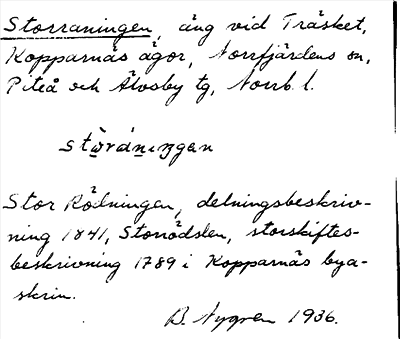 Storraningen, äng vid Träsket,
Kopparnäs ägor, Norrfjärdens sn,
Piteå och Älvsby tg, Norrb. l.
stọ̀ránıŋgen
Stor Rödningen, delningsbeskriv-
ning 1841, Storrödslen, storskiftes-
beskrivning 1789 i Kopparnäs bya-
skrin.
B. Nygren 1936.